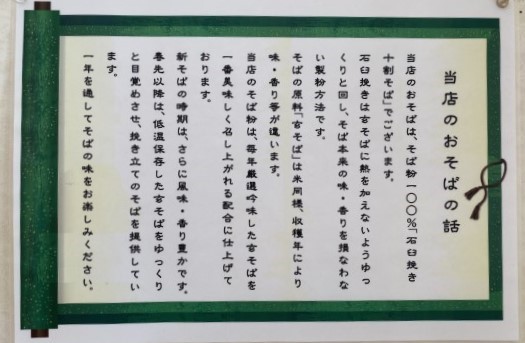 当店のおそばの話
当店のおそばは、そば粉一〇〇％「石臼挽き
十割そば」でございます。
石臼挽きは玄そばに熱を加えないようゆっ
くりと回し、そば本来の味・香りを損なわな
い製粉方法です。
そばの原料「玄そば」は米同様、収穫年により
味・香り等が違います。
当店のそば粉は、毎年厳選吟味した玄そばを
一番美味しく召し上がれる配合に仕上げて
おります。
新そばの時期は、さらに風味・香り豊かです。
春先以降は、低温保存した玄そばをゆっくり
と目覚めさせ、挽き立てのそばを提供してい
ます。
一年を通してそばの味をお楽しみください。